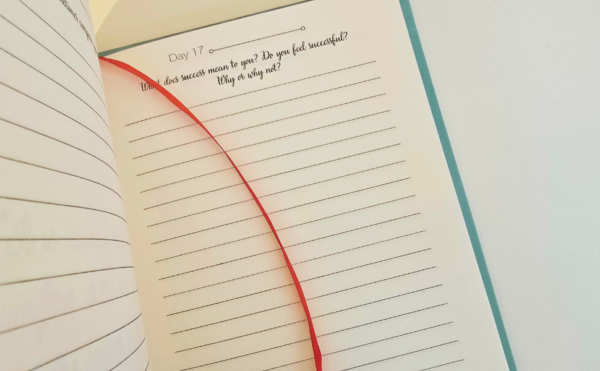 Day 17
What does success mean to you? Do you feel successful?
Why or why not?